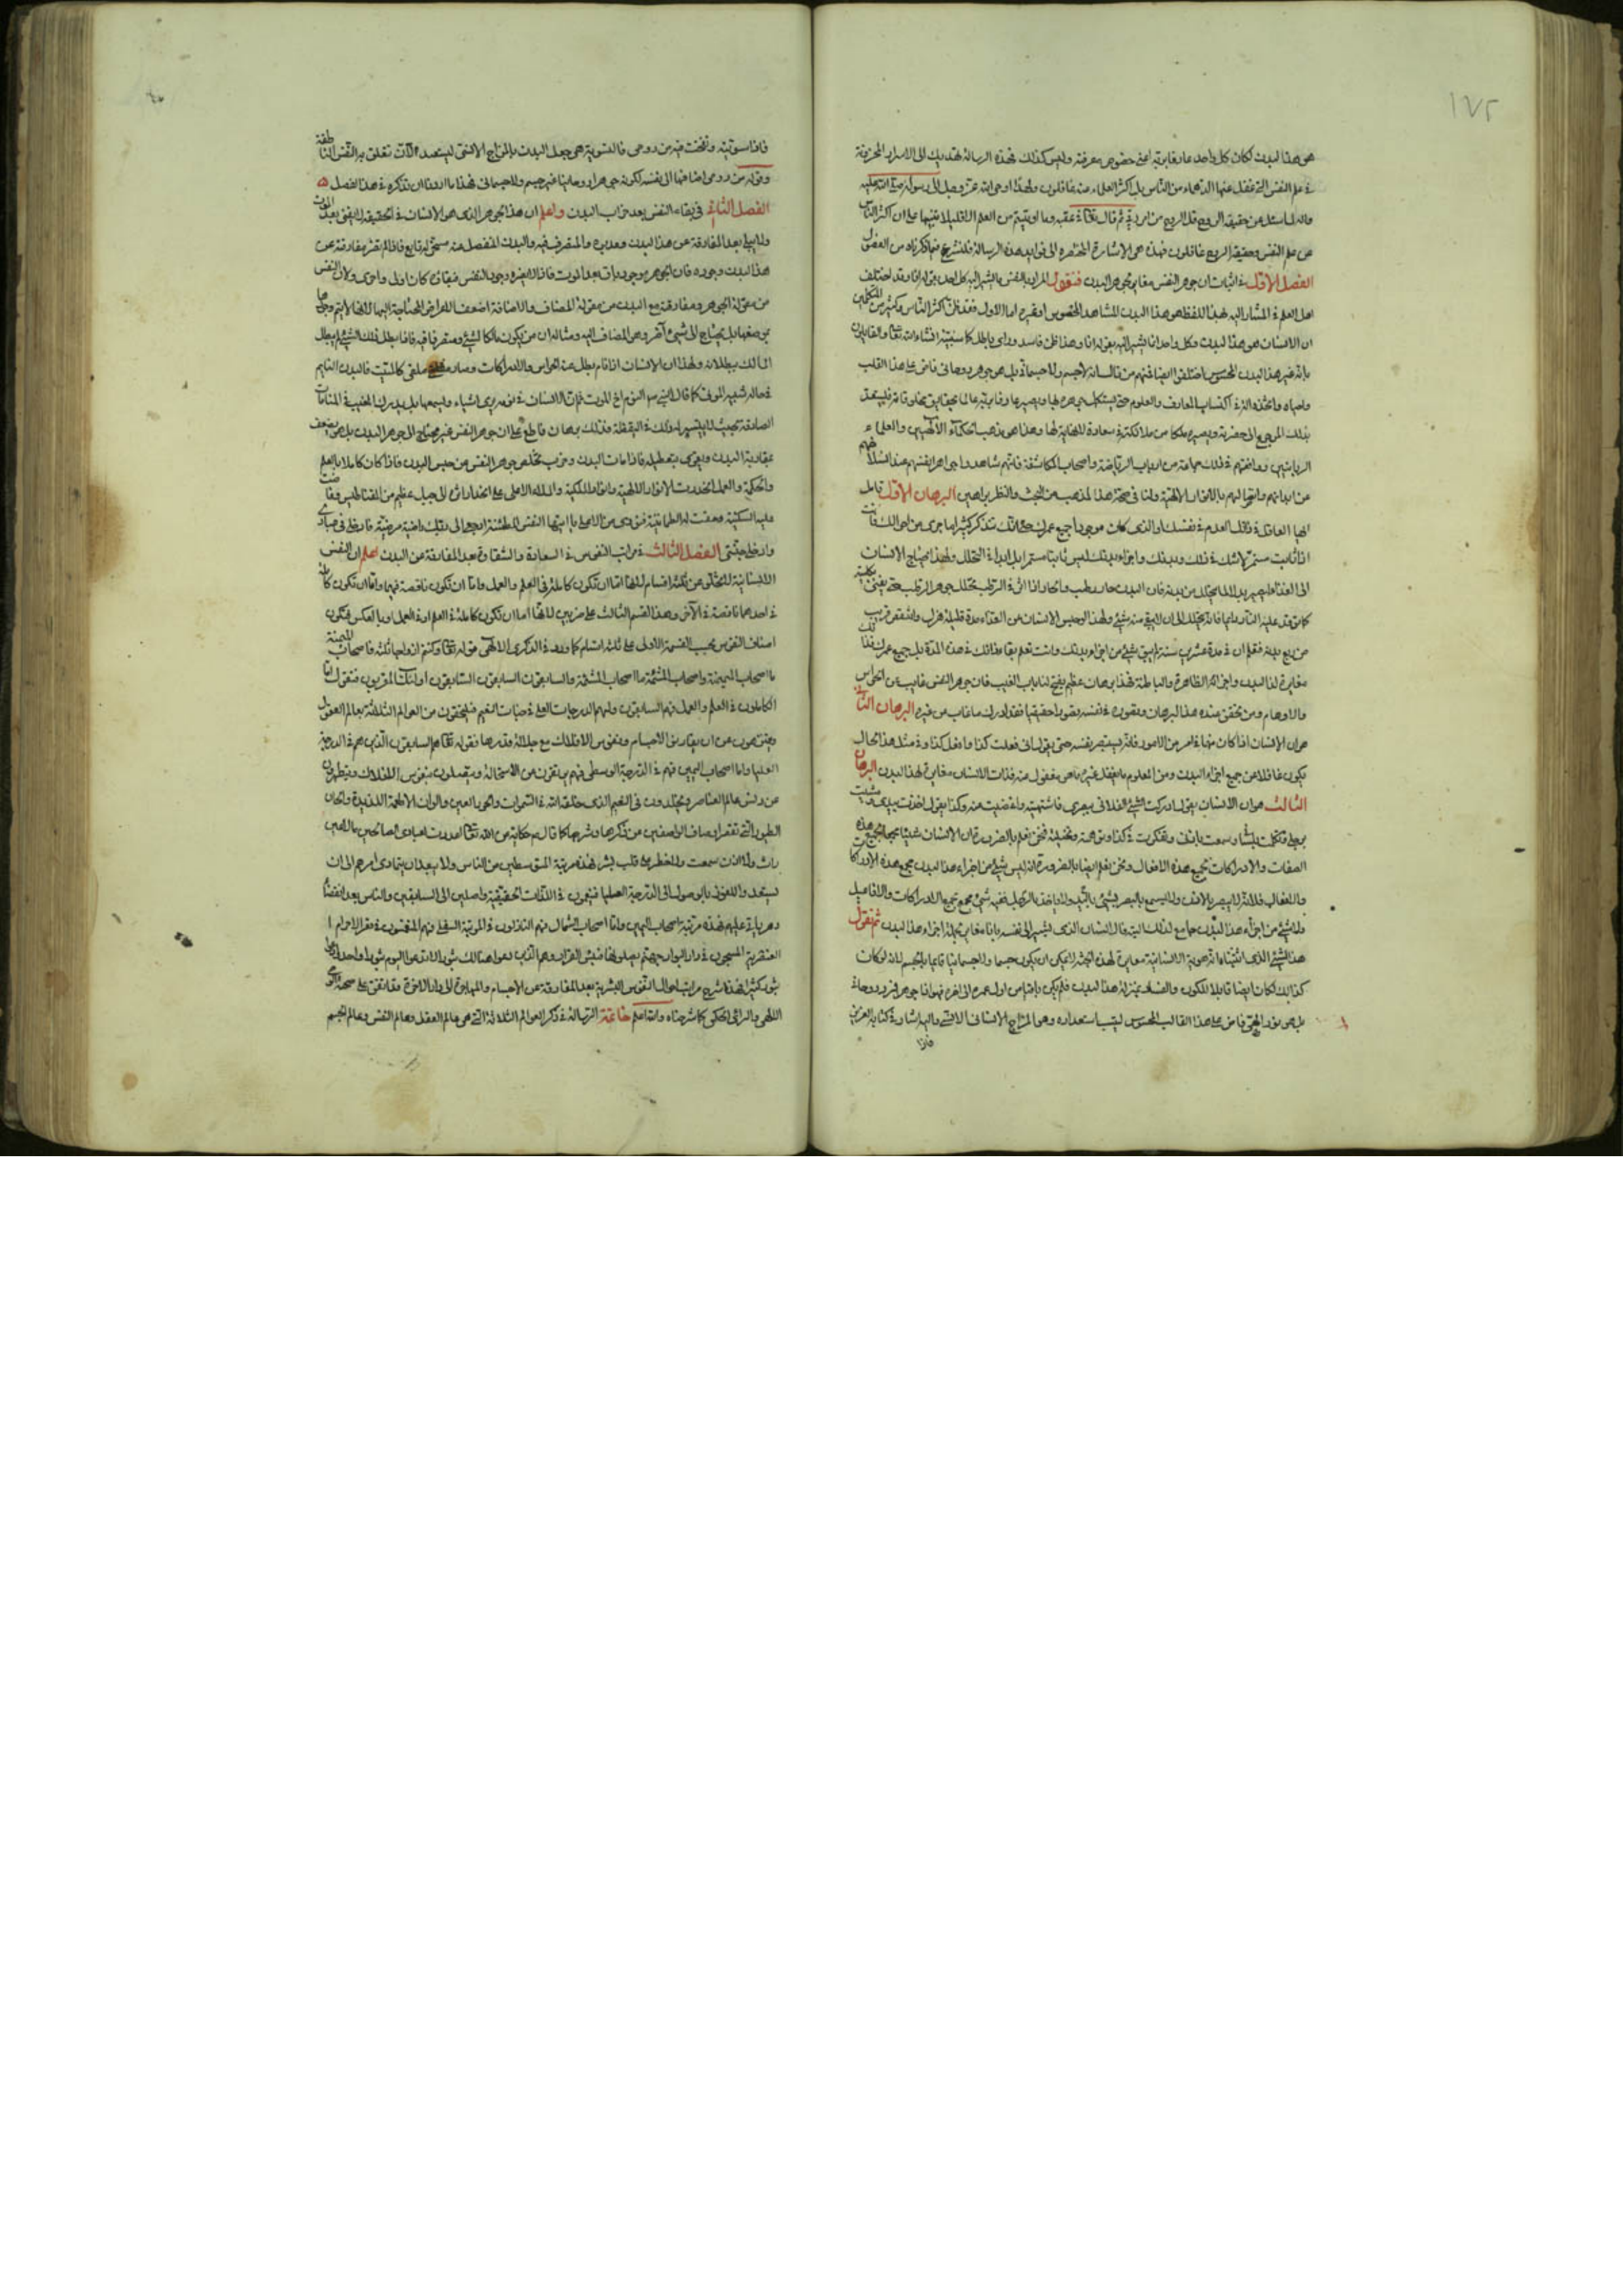 ١٧٢
هو هذا البدن لكان كل واحد عارفا بربه اعنى خصوص معرفته وليس كذلك فهذه الرسالة تهديك الى الاسرار المخزونة
فى علم النفس التى غفل عنها الدهماء من الناس بل اكثر العلماء عنه غافلون ولهذا اوحى الله عز وجل الى رسوله صلى الله عليه
واله لما سئل عن حقيقة الروح قل الروح من امر ربى ثم قال تعالى عقبه وما اوتيتم من العلم الا قليلا تنبيها على ان اكثر الناس
عن علم النفس وحقيقة الروح غافلون فهذه هى الاشارة المختصرة الى فوايد هذه الرسالة فلنشرع فيما ذكرناه من الفصول
الفصل الاول فى اثبات ان جوهر النفس مغاير لجوهر البدن فنقول المراد بالنفس ما يشير اليه كل احد بقوله انا وقد اختلف
اهل العلم فى المشار اليه بهذا اللفظ هو هذا البدن المشاهد المحسوس او غيره اما الاول فقد ظن اكثر الناس وكثير من المتكلمين
ان الانسان هو هذا البدن وكل واحد انما يشير اليه بقوله انا وهذا ظن فاسد وراى باطل كما سنبينه انشاء الله تعالى والقايلون
بانه غير هذا البدن المحسوس اختلفوا ايضا فمنهم من قال انه لا جسم ولا جسمانى بل هو جوهر روحانى فاض على هذا القالب
واحياه واتخذه الة فى اكتساب المعارف والعلوم حتى يستكمل جوهره بها ويصير عارفا بربه عالما بحقايق مخلوقاته فيستعد
بذلك للرجوع الى حضرته ويصير ملكا من ملائكته فى سعادة لا نهاية لها وهذا هو مذهب الحكماء الالهيين والعلماء
الربانيين ووافقهم فى ذلك جماعة من ارباب الرياضة واصحاب المكاشفة فانهم شاهدوا جواهر انفسهم عند انسلاخهم
عن ابدانهم واتصالهم بالانوار الالهية ولنا فى صحة هذا المذهب من البحث والنظر براهين البرهان الاول تامل
ايها العاقل فى انك اليوم فى نفسك هو الذى كان موجودا جميع عمرك حتى انك تتذكر كثيرا مما جرى من احوالك فانت
اذا ثابت مستمر لا شك فى ذلك وبدنك واجزاؤه ليس ثابتا مستمرا بل ابدا فى التحلل ولهذا يحتاج الانسان
الى الغذاء بدل ما يتحلل من بدنه فان البدن حار رطب والحار اذا اثر فى الرطب تحلل جوهر الرطب حتى يفنى بكليته
كما توقد عليه النار دايما فانه يتحلل الى ان لا يبقى منه شىء ولهذا لو حبس الانسان عن الغذاء مدة قليلة هزل وانتقص قريب
من ربع بدنه فتعلم ان فى مدة عشرين سنة لم يبق شىء من اجزاء بدنك وانت تعلم بقاء ذاتك فى هذه المدة بل جميع عمرك فذاتك
مغايرة لهذا البدن واجزائه الظاهرة والباطنة فهذا برهان عظيم يفتح لنا باب الغيب فان جوهر النفس غايب عن الحواس
والاوهام ومن تحقق عنده هذا البرهان وتصوره فى نفسه تصورا حقيقيا فقد ادرك ما غاب عن غيره البرهان الثانى
هو ان الانسان اذا كان منهمكا فى امر من الامور فانه يستحضر نفسه حتى يقول انى فعلت كذا وافعل كذا وفى مثل هذا الحال
يكون غافلا عن جميع اجزاء البدن ومن المعلوم بالفعل غير ما هو مغفول عنه فذات الانسان مغايرة لهذا البدن البرهان
الثالث هو ان الانسان يقول ادركت الشىء الفلانى ببصرى فاشتهيته او غضبت منه وكذا يقول اخذت بيدى ومشيت
برجلى وتكلمت بلسانى وسمعت باذنى وتفكرت فى كذا وتوهمته وتخيلته فنحن نعلم بالضرورة ان الانسان شيئا جامعا يجمع هذه
الصفات والادراكات ويجمع هذه الافعال ونحن نعلم ايضا بالضرورة انه ليس شىء من اجزاء هذا البدن يجمع هذه الادراكات
والافعال فلانه لا يبصر بالانف ولا يسمع بالبصر ولا يمشى باليد ولا ياخذ بالرجل ففيه شىء مجمع لجميع الادراكات والافاعيل
ولا شىء من اجزاء هذا البدن جامع لذلك البتة فالانسان الذى يشير الى نفسه بانا مغاير لجملة اجزاء هذا البدن ثم نقول
هذا الشىء الذى اثبتناه انه هوية الانسانية مغايرة لهذه الجثة لا يمكن ان يكون جسما ولا جسمانيا قايما بالجسم لانه لو كان
كذلك لكان ايضا قابلا للكون والفساد بمنزلة هذا البدن فلم يكن باقيا من اول عمره الى اخره فهو اذا جوهر فرد روحانى
بل هو نور الهى فاض على هذا القالب المحسوس بسبب استعداده وهو المزاج الانسانى الاتم واليه اشار فى كتابه العزيز
فاذا
فاذا سويته ونفخت فيه من روحى فالتسوية هى جعل البدن بالمزاج الانسى ليستعد الان تعلق به النفس الناطقة
وقوله من روحى اضافها الى نفسه لكونه جوهرا روحانيا غير جسم ولا جسمانى فهذا ما اردنا ان نذكره فى هذا الفصل
الفصل الثانى فى بقاء النفس بعد خراب البدن واعلم ان هذا الجوهر الذى هو الانسان فى الحقيقة لا يفنى بعد الموت
ولا يبلى بعد المفارقة عن هذا البدن ومدبره والمتصرف فيه والبدن المنفصل عنه مسخر له تابع فاذا لم تضر مفارقته عن
هذا البدن وجوده فان الجوهر موجود باق بعد الموت فاذا لا يضره وجود النفس فبقاؤه كان اولى واحرى ولان النفس
من مقولة الجوهر ومقارنته مع البدن من مقولة المضاف والاضافة اضعف الاعراض المحتاجة اليها لانها لا يتم وجودها
بموضوعها بل يحتاج الى شىء اخر وهو المضاف اليه ومثاله ان من يكون مالكا لشىء ومتصرفا فيه فاذا بطل ذلك الشىء لم يبطل
المالك ببطلانه ولهذا ان الانسان اذا نام بطل عنه الحواس والادراكات وصار ملقى كالميت فالبدن النايم
فى حالة شبيهة الموت كما قال النبى النوم اخ الموت ثم ان الانسان فى نومه يرى اشياء ويسمعها بل يدرك الغيب فى المنامات
الصادقة بحيث لا يتيسر له ذلك فى اليقظة فذلك برهان قاطع على ان جوهر النفس غير محتاج الى جوهر البدن بل هو يضعف
بمقارنة البدن ويقوى بتعطيله فاذا مات البدن وخرب تخلص جوهر النفس من حبس البدن فاذا كان كاملا بالعلم
والحكمة والعمل انجذب الى الانوار الالهية وانوار الملائكة والملاء الاعلى على انجذاب ابرة الى جبل عظيم من المغناطيس وفاضت
عليه السكينة وحقت له الطمانينة فنودى من الملاء الاعلى يا ايتها النفس المطمئنة ارجعى الى ربك راضية مرضية فادخلى فى عبادى
وادخلى جنتى الفصل الثالث فى مراتب النفوس فى السعادة والشقاوة بعد المفارقة عن البدن اعلم ان النفس
الانسانية لا تخلو من ثلثة اقسام لانها اما ان تكون كاملة فى العلم والعمل واما ان تكون ناقصة فيهما واما ان تكون كاملة
فى احدهما ناقصة فى الاخر وهذا القسم الثالث على ضربين لانها اما ان تكون كاملة فى العلم او فى العمل او بالعكس فتكون
اصناف النفوس بحسب القسمة الاولى على ثلثة اقسام كما ورد فى الذكر الالهى قوله تعالى وكنتم ازواجا ثلثة فاصحاب الميمنة
ما اصحاب الميمنة واصحاب المشئمة ما اصحاب المشئمة والسابقون السابقون اولئك المقربون فنقول اما
الكاملون فى العلم والعمل فهم السابقون ولهم الدرجات العلى فى جنات النعيم فيلتحقون من العوالم الثلاثة بعالم العقول
ويتنزهون عن ان يقارنوا الاجسام ونفوس الافلاك مع جلالة قدرها فقوله تعالى هم السابقون الذين هم فى الدرجة
العليا واما اصحاب اليمين فهم فى الدرجة الوسطى فهم يرتقون عن الاستحالة ويتصلون بنفوس الافلاك ويتطهرون
عن دنس عالم العناصر ويخلدون فى النعيم الذى خلقه الله فى السموات والحور العين والوان الاطعمة اللذيذة والحان
الطيور التى تقصر اوصاف الواصفين من ذكرها وشرحها كما قال حكاية عن الله تعالى اعددت لعبادى الصالحين ما لا عين
رات ولا اذن سمعت ولا خطر على قلب بشر فهذه مرتبة المتوسطين من الناس ولا يبعد ان يتمادى امرهم الى ان
يستعدوا للفوز بالوصول الى الدرجة العليا فينغمسون فى اللذات الحقيقية واصلين الى السابقين والناس بعد انقضاء
دهر ياتى عليهم فهذه مرتبة اصحاب اليمين واما اصحاب الشمال فهم النازلون فى المرتبة السفلى فهم المنغمسون فى قعر الاجرام
العنصرية المسجونون فى دار البوار جهنم يصلونها فبئس القرار وهم الذين دعوا هنالك ثبورا لا تدعوا اليوم ثبورا واحدا وادعوا
ثبورا كثيرا فهذا شرح مراتب احوال النفوس البشرية بعد المفارقة عن الاجسام والمهاجرة الى دار الاخرة وقد اتفق على صحته الوحى
الالهى والراى الحكمى كما شرحناه والله اعلم خاتمة الرسالة فى ذكر العوالم الثلاثة التى هى عالم العقل وعالم النفس وعالم الجسم